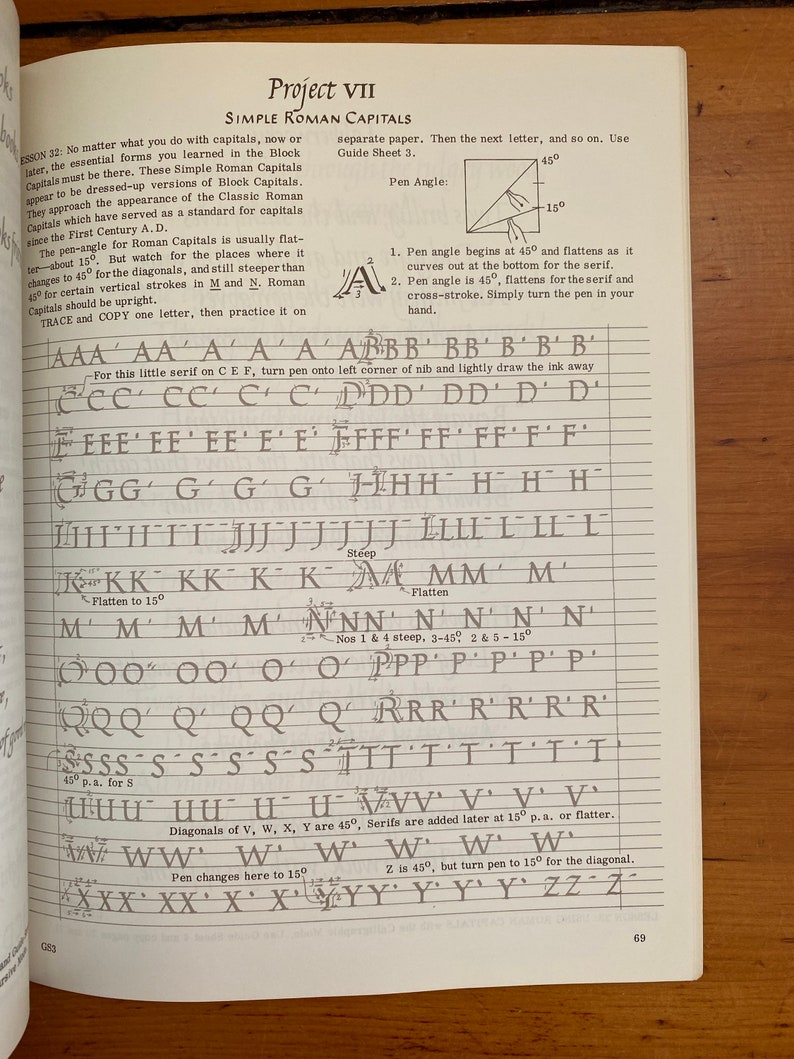 Project VII
SIMPLE ROMAN CAPITALS
ESSON 32: No matter what you do with capitals, now or
later, the essential forms you learned in the Block
Capitals must be there. These Simple Roman Capitals
appear to be dressed-up versions of Block Capitals.
They approach the appearance of the Classic Roman
Capitals which have served as a standard for capitals
since the First Century A.D.
The pen-angle for Roman Capitals is usually flat-
ter—about 15°. But watch for the places where it
changes to 45° for the diagonals, and still steeper than
45° for certain vertical strokes in M and N. Roman
Capitals should be upright.
TRACE and COPY one letter, then practice it on
separate paper. Then the next letter, and so on. Use
Guide Sheet 3.
Pen Angle:
45°
15°
1. Pen angle begins at 45° and flattens as it
curves out at the bottom for the serif.
2. Pen angle is 45°, flattens for the serif and
cross-stroke. Simply turn the pen in your
hand.
A
3
AAA ' AA ' A ' A ' A ' ABBB ' BB ' B ' B ' B '
For this little serif on C E F, turn pen onto left corner of nib and lightly draw the ink away
CCC ' CC ' C ' C ' DDD ' DD ' D ' D '
EEEE ' EE ' E ' E ' FFFF ' FF ' FF ' F ' F '
GGG ' G ' G ' G ' HHH - H - H - H -
IIII - II - I - I - JJJ - J - J - J - J - LLLL - L - LL - L -
Steep
KKK - KK - K - K - M MM ' M '
Flatten to 15°
Flatten
M ' M ' M ' M ' NNN ' N ' N ' N ' N '
Nos 1 & 4 steep, 3-45°, 2 & 5 - 15°
OOO " OO ' O ' O ' PPP ' P ' P ' P ' P '
QQQ ' Q ' QQ ' Q ' RRR ' R ' R ' R ' R '
SSSS - S - S - S - S - S - TTT ' T ' T ' T ' T ' T
45° p.a. for S
UUU - UU - U - U - VVV ' V ' V ' V '
Diagonals of V, W, X, Y are 45°, Serifs are added later at 15° p.a. or flatter.
W WW ' W ' W ' W ' W ' W '
Pen changes here to 15°
Z is 45°, but turn pen to 15° for the diagonal.
XXX ' XX ' X ' X ' YYY ' Y ' Y ' Y ' ZZ - Z
GS3
69